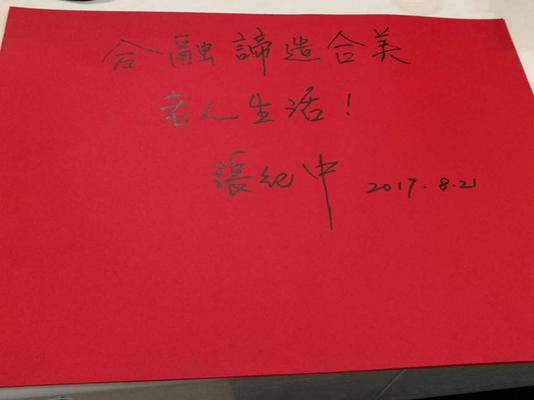 合融諦造合美
老人生活！
張纪中 2017.8.21